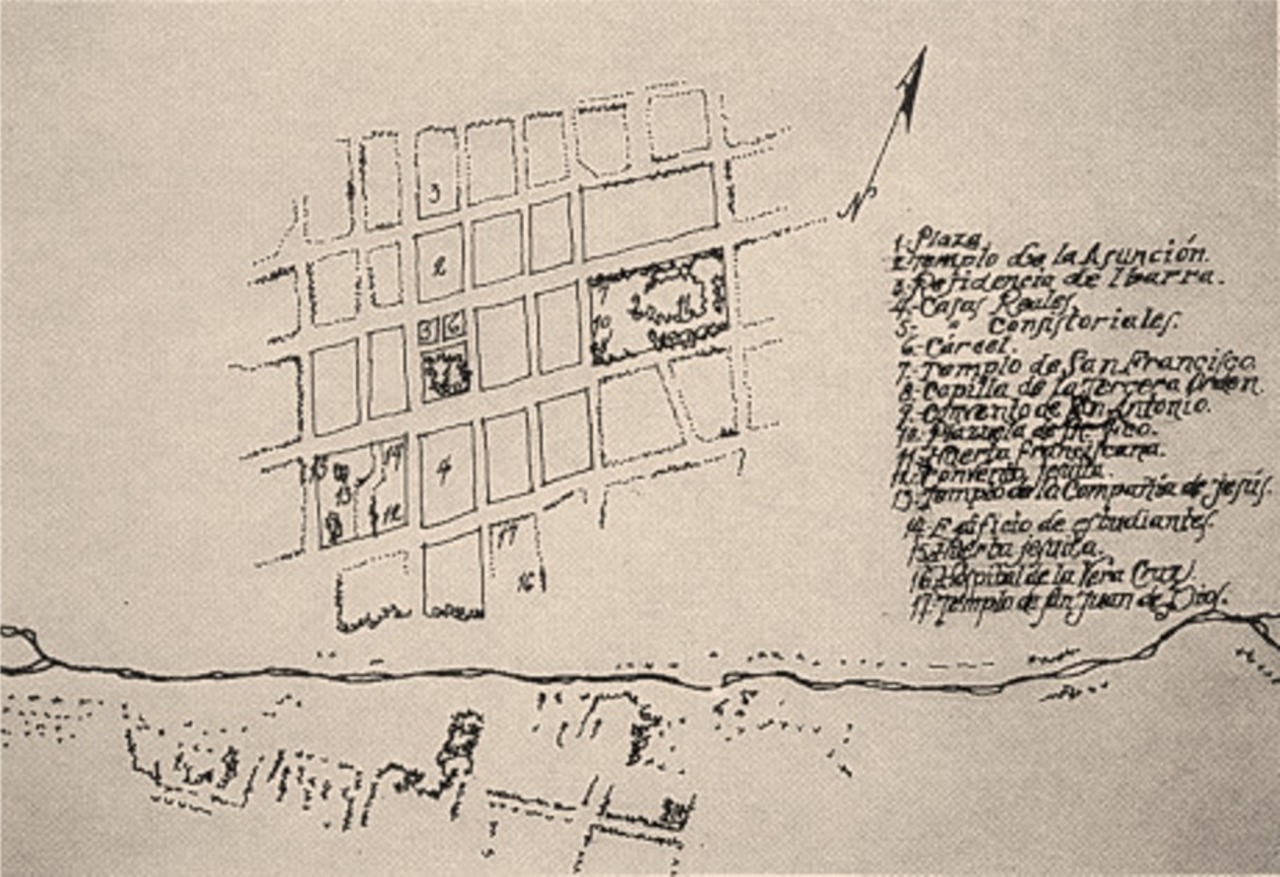 3
2
5 6
7
10
15 14
13
12
4
17
16
N
1.-Plaza.
2.-Templo de la Asunción.
3.-Residencia de Ibarra.
4.-Casas Reales.
5.- " consistoriales.
6.-Cárcel.
7.-Templo de San Francisco.
8.-Capilla de la Tercera Orden.
9.-Convento de San Antonio.
10.-Plazuela de
11.-Huerta Franciscana.
12.-Convento jesuita.
13.-Templo de la Compañía de jesús.
14.-Edificio de estudiantes
15.-Huerta jesuita.
16.-Hospital de la Vera Cruz.
17.-Templo de Sn Juan de Dios.